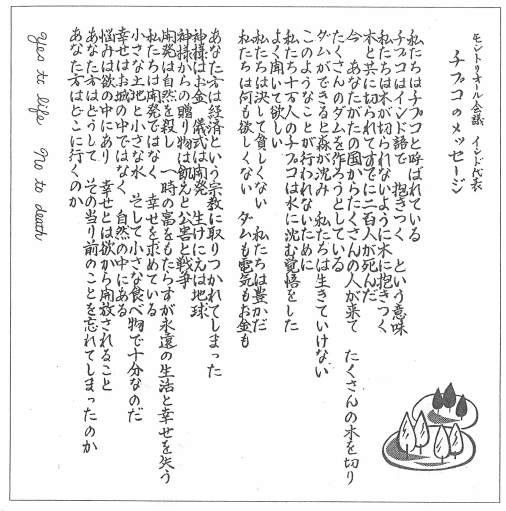 モントリオール会議 インド代表
チプコのメッセージ
私たちはチプコと呼ばれている
チプコはインド語で 抱きつく という意味
私たちは木が切られないように木に抱きつく
木と共に切られてすでに二百人が死んだ
今 あなたがたの国からたくさんの人が来て たくさんの木を切り
たくさんのダムを作ろうとしている
ダムができると森が沈み 私たちは生きていけない
このようなことが行われないために
私たち十万人のチプコは水に沈む覚悟をした
よく聞いて欲しい
私たちは決して貧しくない 私たちは豊かだ
私たちは何も欲しくない ダムも電気もお金も
あなた方は経済という宗教に取りつかれてしまった
神様はお金 儀式は開発 生けにえは地球
神様からの贈り物は飢えと公害と戦争
開発は自然を殺し 一時の富をもたらすが永遠の生活と幸せを失う
私たちは開発ではなく 幸せを求めている
小さな土地と小さな水 そして小さな食べ物で十分なのだ
幸せはお城の中ではなく 自然の中にある
悩みは欲の中にあり 幸せとは欲から開放されること
あなた方はどうして その当り前のことを忘れてしまったのか
あなた方はどこに行くのか
Yes to life No to death